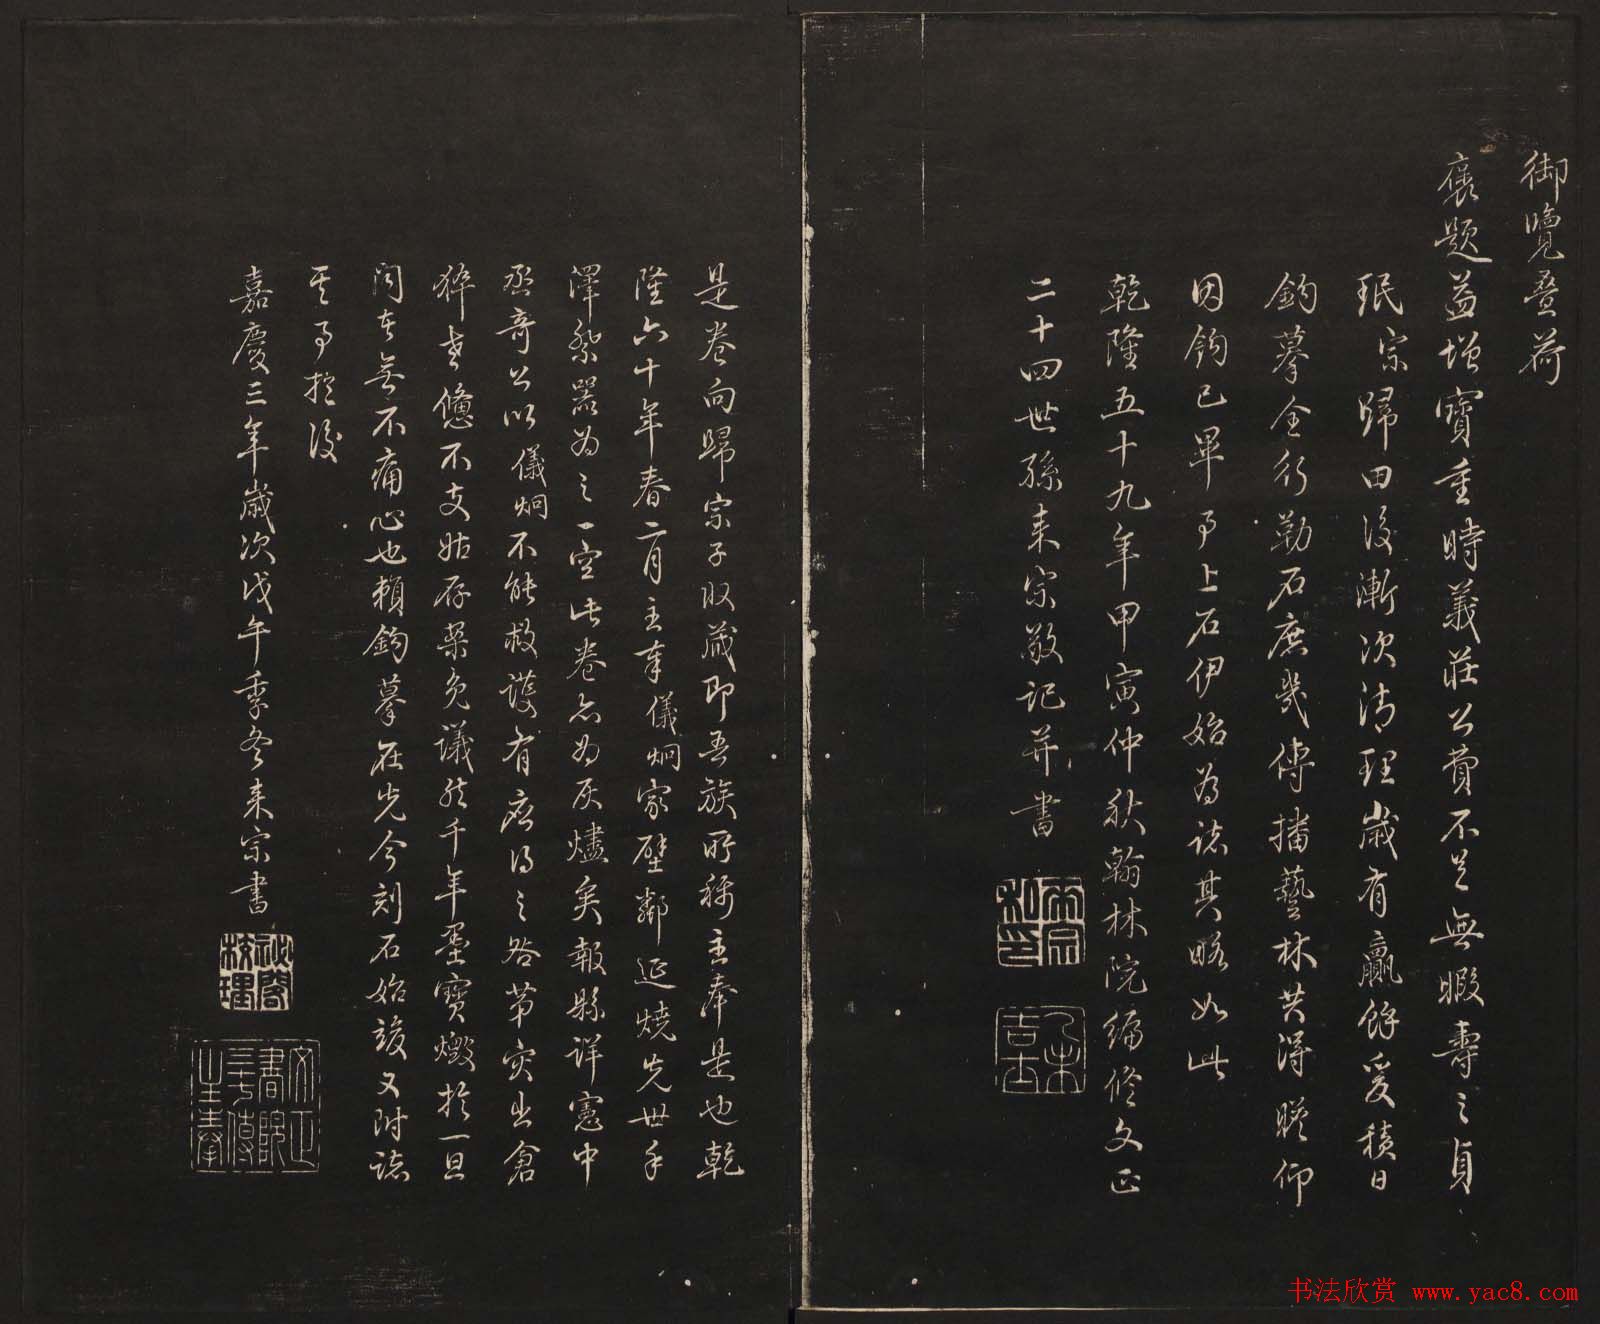 御覽疊荷
褒題益增寶重時義莊公費不足無暇壽之貞
珉宗歸田後漸次清理歲有贏餘爰積日
鈎摹全行勒石庶幾傳播藝林共得瞻仰
因鈎已畢予上石伊始為誌其略如此
乾隆五十九年甲寅仲秋翰林院編修文正
二十四世孫來宗敬記并書
是卷向歸宗子收藏即吾族所稱主奉是也乾
隆六十年春二月主奉儀炯家壁鄰延燒先世手
澤祭器為之一空此卷亦為灰燼矣報縣詳憲中
丞奇公以儀炯不能救護有應得之咎第災出倉
猝老憊不支姑存案免議然千年墨寶燬於一旦
聞者無不痛心也賴鈎摹在先今刻石始竣又附誌
其事於後
嘉慶三年歲次戊午季冬來宗書
文正書院
主奉
书法欣赏 www.yac8.com